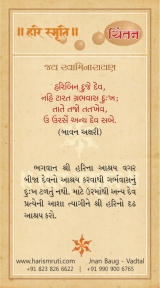 ॥ હરિ સ્મૃતિ ॥
ચિંતન
જય સ્વામિનારાયણ
હરિબિન દુજે દેવ,
નહિ ટારત ગ્રભવાસ દુઃખ;
તાતે તજો તતખેવ,
ઉ ઉરસેં અન્ય દેવ સબે.
(બાવન અક્ષરી)
ભગવાન શ્રી હરિના આશ્રય વગર
બીજા દેવનો આશ્રય કરવાથી ગર્ભવાસનું
દુઃખ ટળતું નથી. માટે ઉરમાંથી અન્ય દેવ
પ્રત્યેની આશા ત્યાગીને શ્રી હરિનો દઢ
આશ્રય કરો.
www.harismruti.com
Jnan Baug – Vadtal
+91 823 826 6622 | +91 990 900 6765